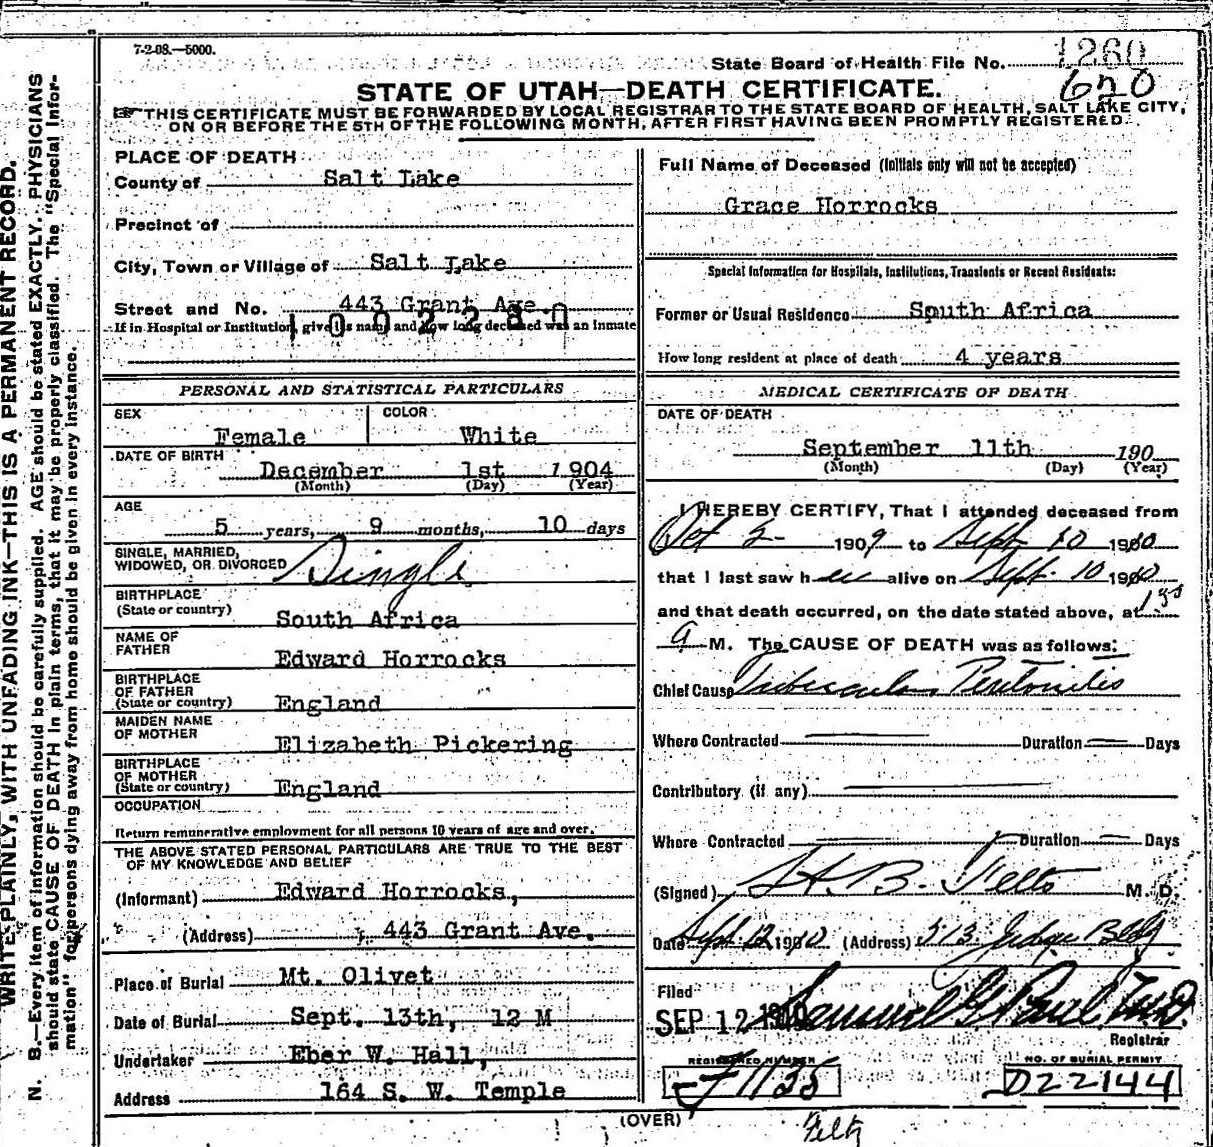 7-2-08.—5000.
State Board of Health File No. 1260
620
STATE OF UTAH—DEATH CERTIFICATE.
☞THIS CERTIFICATE MUST BE FORWARDED BY LOCAL REGISTRAR TO THE STATE BOARD OF HEALTH, SALT LAKE CITY,
ON OR BEFORE THE 5TH OF THE FOLLOWING MONTH, AFTER FIRST HAVING BEEN PROMPTLY REGISTERED.
WRITE PLAINLY, WITH UNFADING INK—THIS IS A PERMANENT RECORD.
N. B.—Every item of information should be carefully supplied. AGE should be stated EXACTLY. PHYSICIANS
should state CAUSE OF DEATH in plain terms, that it may be properly classified. The "Special Infor-
mation" for persons dying away from home should be given in every instance.
PLACE OF DEATH
County of Salt Lake
Precinct of
City, Town or Village of Salt Lake
Street and No. 443 Grant Ave.
1002280
If in Hospital or Institution, give its name and how long deceased was an inmate
PERSONAL AND STATISTICAL PARTICULARS
SEX Female COLOR White
DATE OF BIRTH
December 1st 1904
(Month) (Day) (Year)
AGE
5 years, 9 months, 10 days
SINGLE, MARRIED,
WIDOWED, OR DIVORCED Single
BIRTHPLACE
(State or country) South Africa
NAME OF
FATHER Edward Horrocks
BIRTHPLACE
OF FATHER
(State or country) England
MAIDEN NAME
OF MOTHER Elizabeth Pickering
BIRTHPLACE
OF MOTHER
(State or country) England
OCCUPATION
Return remunerative employment for all persons 10 years of age and over.
THE ABOVE STATED PERSONAL PARTICULARS ARE TRUE TO THE BEST
OF MY KNOWLEDGE AND BELIEF
(Informant) Edward Horrocks,
(Address) 443 Grant Ave.
Place of Burial Mt. Olivet
Date of Burial Sept. 13th, 12 M
Undertaker Eber W. Hall,
Address 164 S. W. Temple
Full Name of Deceased (Initials only will not be accepted)
Grace Horrocks
Special Information for Hospitals, Institutions, Transients or Recent Residents:
Former or Usual Residence South Africa
How long resident at place of death 4 years
MEDICAL CERTIFICATE OF DEATH
DATE OF DEATH
September 11th 190
(Month) (Day) (Year)
I HEREBY CERTIFY, That I attended deceased from
Oct 2 1909 to Sept. 10 1910
that I last saw her alive on Sept. 10 1910
and that death occurred, on the date stated above, at
a M. The CAUSE OF DEATH was as follows:
Chief Cause Tubercular Peritonitis
Where Contracted Duration Days
Contributory (if any)
Where Contracted Duration Days
(Signed) H. B. Felts M. D.
Date Sept. 12 1910 (Address) 513 Judge Bldg
Filed
SEP 12 1910 Samuel G Paul M.D.
Registrar
REGISTERED NUMBER
1135
NO. OF BURIAL PERMIT
D22144
(OVER)